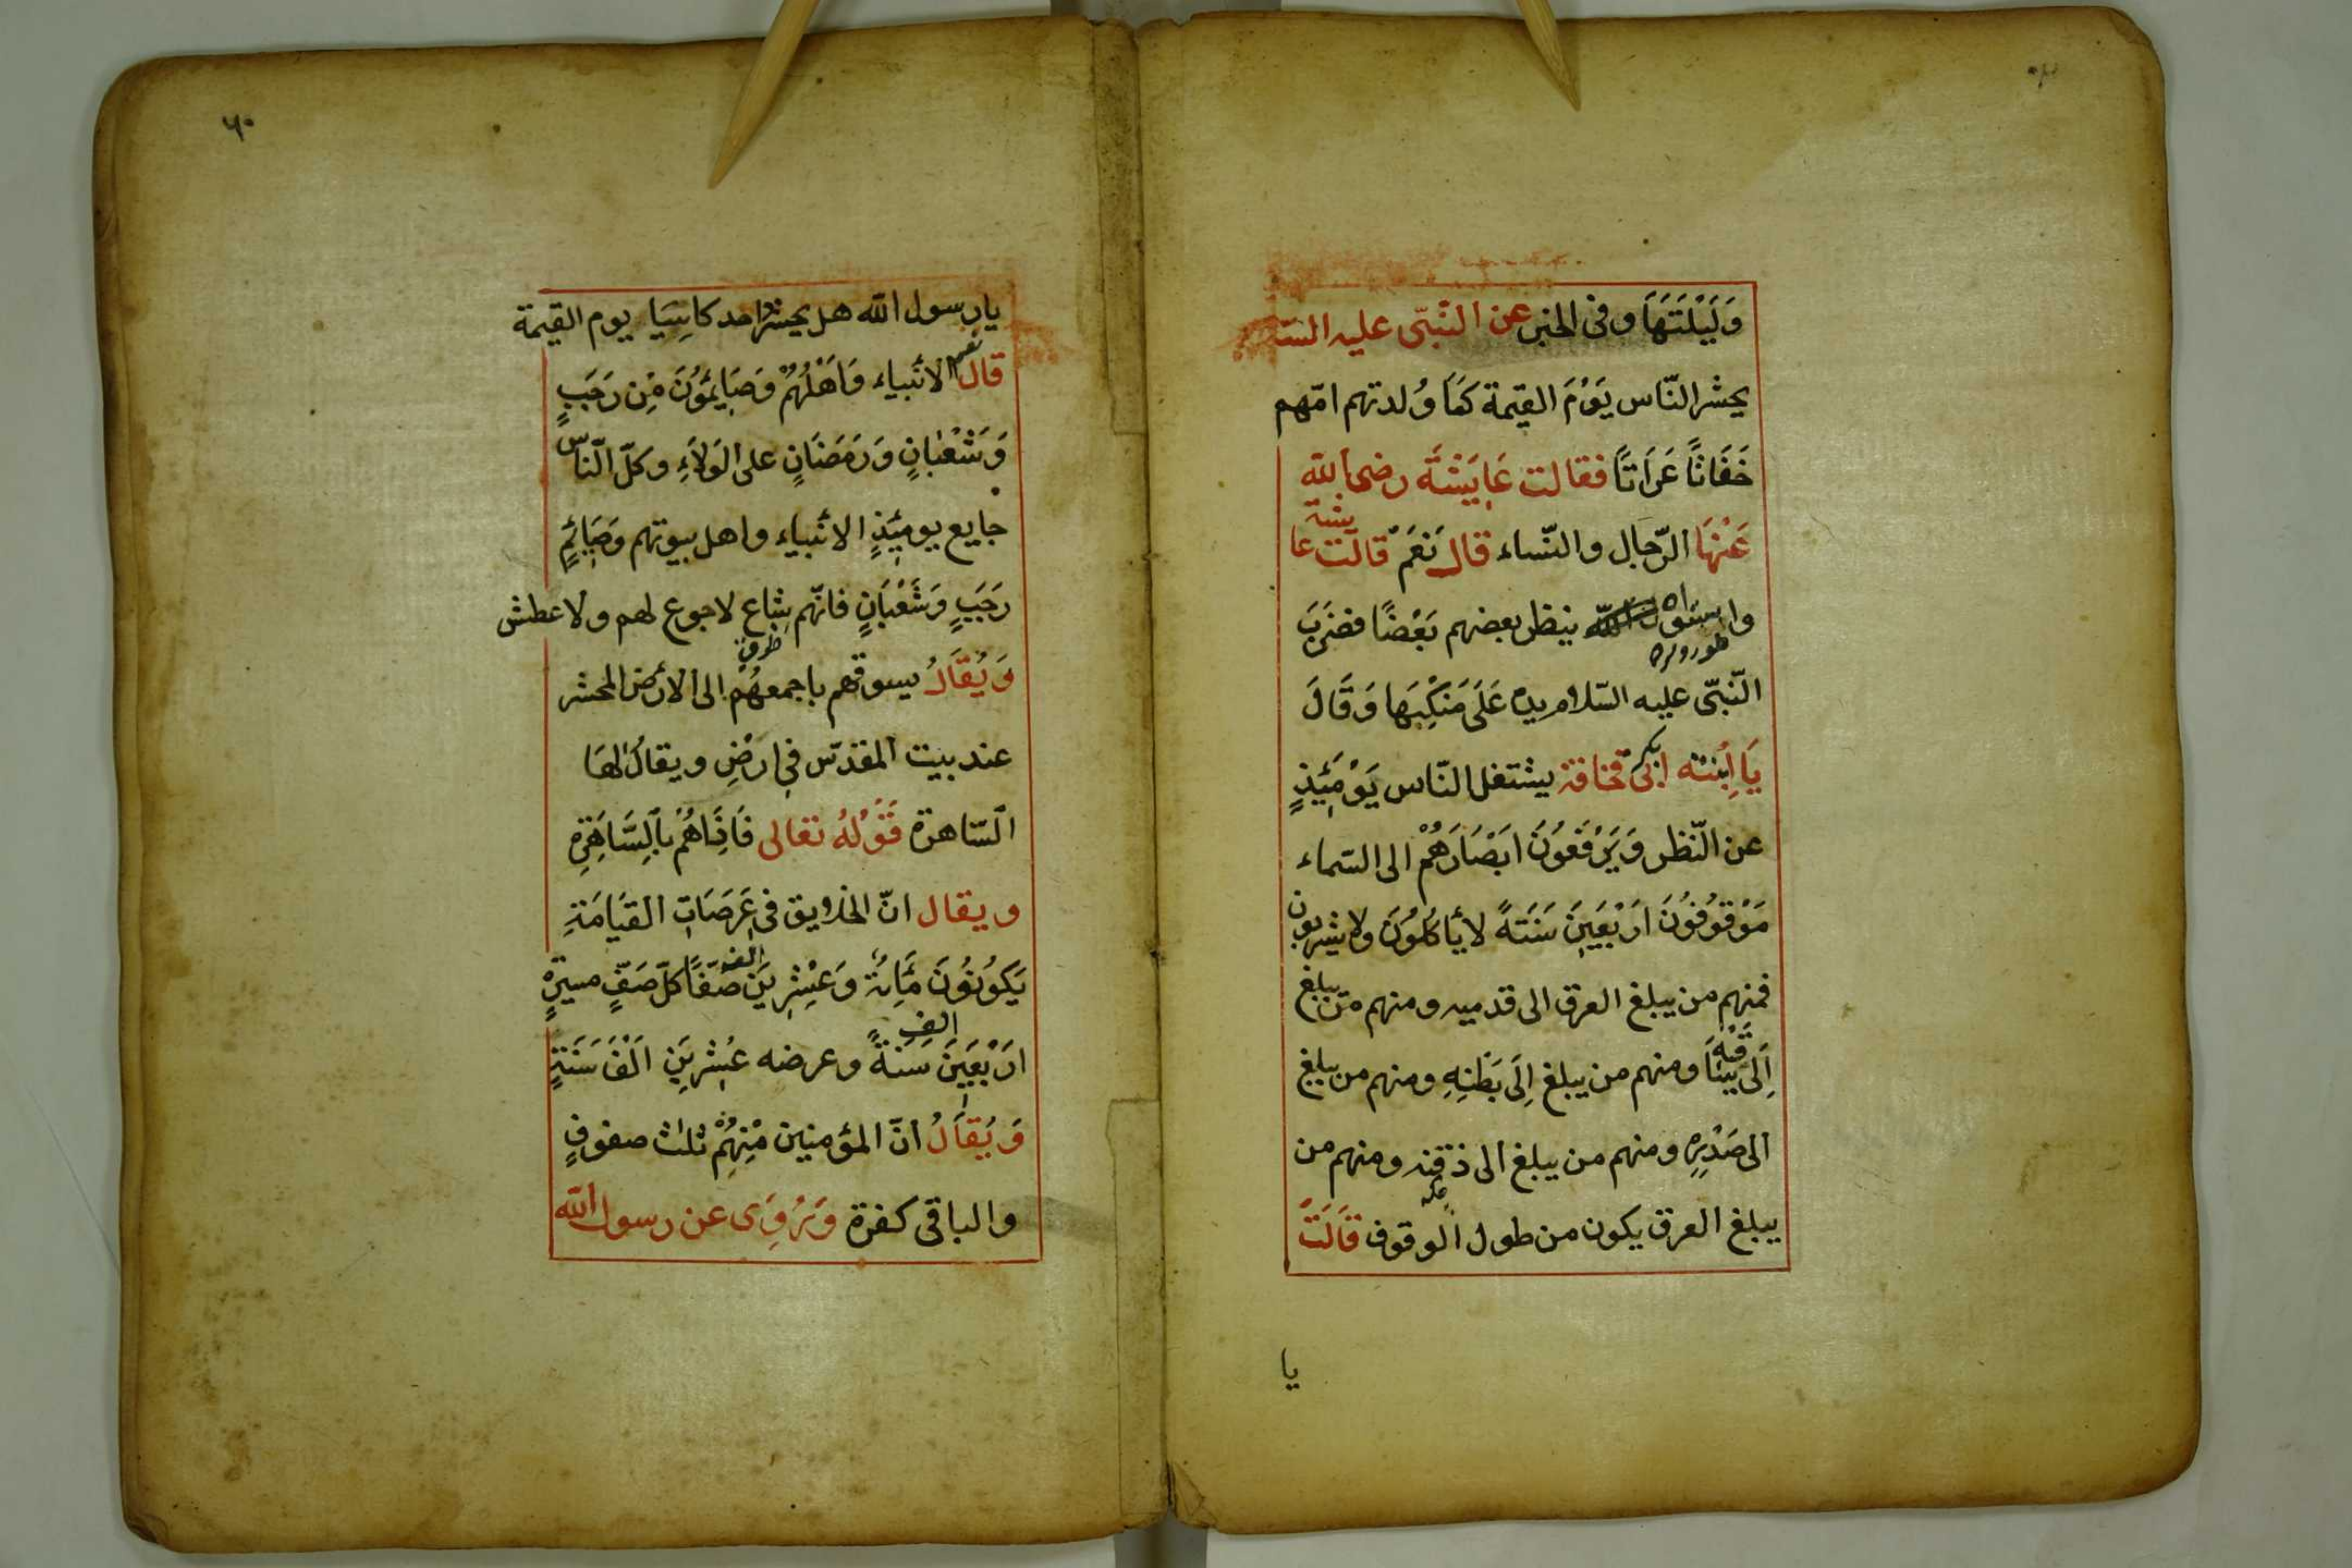 وَلَيْلَتَهَا وفى الخبر عن النّبّى عليه السّ
يحشر النّاس يَوْمَ القيمة كَمَا وُلدتهم امّهم
حَفَاتًا عَرَاتًا فقالت عَايَشَة رضى الله
عَنْهَا الرّجال والنّساء قال نَعَمْ قالت عا
يشة
واسوأتاه ينظر بعضهم بَعْضًا فضَرَبَ
النّبّى عليه السّلام يده عَلَى مَنَكِبَها وَقَالَ
يَا اِبْنته ابى قحافة يشتغل النّاس يَوْمَئِذٍ
بكر
عن النّظر وَيَرْفَعُونَ ابَصَارَهُمْ الى السّماء
مَوْقُوفُونَ ارَبَعَينَ سَنَتةً لا يأكلُونَ ولا يشربون
فمنهم من يبلغ العرق الى قدميه ومنهم من يبلغ
اِلَى ومنهم من يبلغ اِلَى بَطَنِهِ ومنهم من يبلغ
الى صَدْرِه ومنهم من يبلغ الى ذقنه ومنهم من
يبلغ العرق يكون من طول الوقوف قَالَتْ
يا
٦٠
يا رسول الله هل يحشر احد كاسِيَا يوم القيمة
قال نعم الانَبياء وَاَهْلُهُمْ وَصَايِمُونَ مِن رَجَبٍ
وَشَعْبَانٍ وَرَمَضَانٍ على الوَلَاءِ وكلّ النّاس
جايع يومئِذٍ الا انَبياء واهل بيوتهم وَصَائِمٍ
رَجَبٍ وَشَعْبَانٍ فانّهم شِباع لا جوع لهم ولا عطش
وَيُقَالُ يسوقهم باجمعهُمْ الى الارض المحشر
عند بيت المقدّس فى ارَضِ ويقال لهَا
السّاهرة قَوْلهُ تعالى فَاِذَاهُمْ بالِسَّاهِرَةِ
ويقال انّ الخلايق فى عَرَصَاتِ القيَامَةِ
يَكوُنوُنَ مَايَةٌ وَعِشِرينَ صَفًا كلّ صَفٍّ مسيرةٍ
الف
ارَبْعَينَ سَنَةً وعرضه عِشرينَ اَلْفَ سَنَةٍ
الف
وَيُقَالُ انّ المؤمنين مِنهُمْ ثلث صفوفٍ
والباقى كفرة وَيرُوَى عن رسول الله